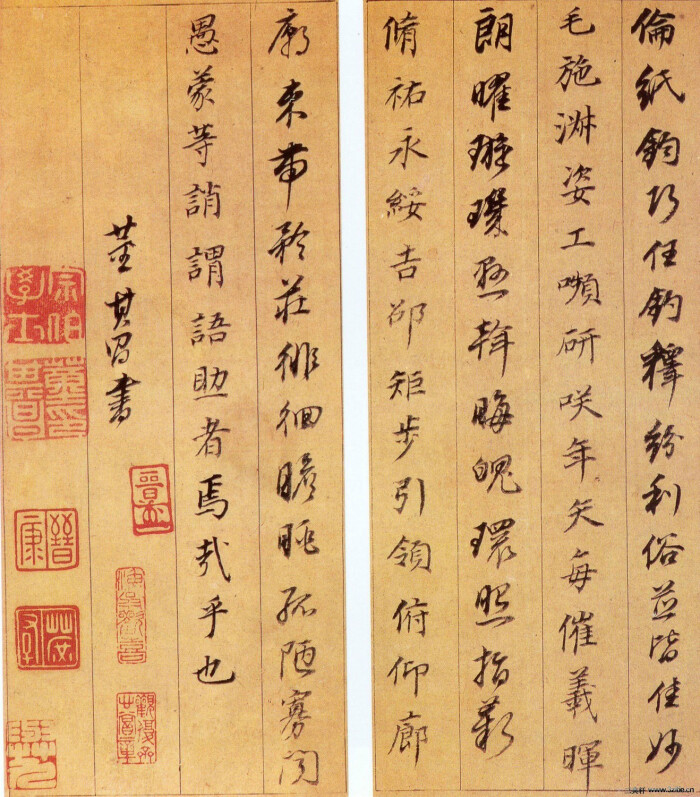 倫紙鈞巧任釣釋紛利俗並皆佳妙
毛施淑姿工嚬研咲年矢每催羲暉
朗曜璇璣懸斡晦魄環照指薪
脩祜永綏吉邵矩步引領俯仰廊
廟束帶矜莊徘徊瞻眺孤陋寡聞
愚蒙等誚謂語助者焉哉乎也
董其昌書
宗伯學士
董其昌印